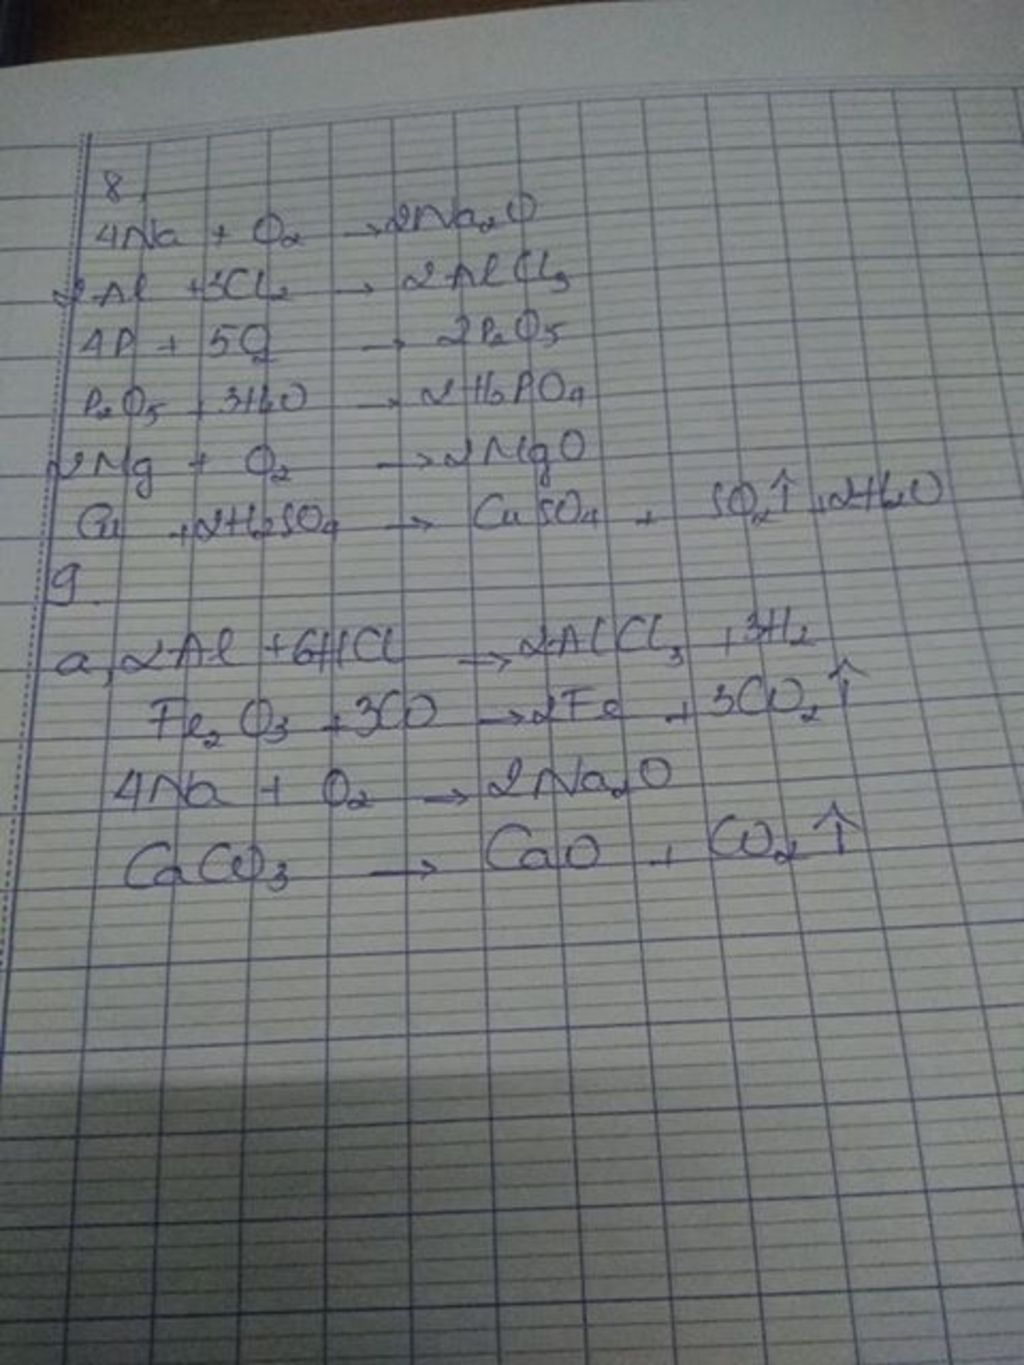 8.
4Na + O₂ → 2Na₂O
2Al + 3Cl₂ → 2AlCl₃
4P + 5O₂ → 2P₂O₅
P₂O₅ + 3H₂O → 2H₃PO₄
2Mg + O₂ → 2MgO
Cu + 2H₂SO₄ → CuSO₄ + SO₂↑ + 2H₂O
9.
a, 2Al + 6HCl → 2AlCl₃ + 3H₂
Fe₂O₃ + 3CO → 2Fe + 3CO₂↑
4Na + O₂ → 2Na₂O
CaCO₃ → CaO + CO₂↑